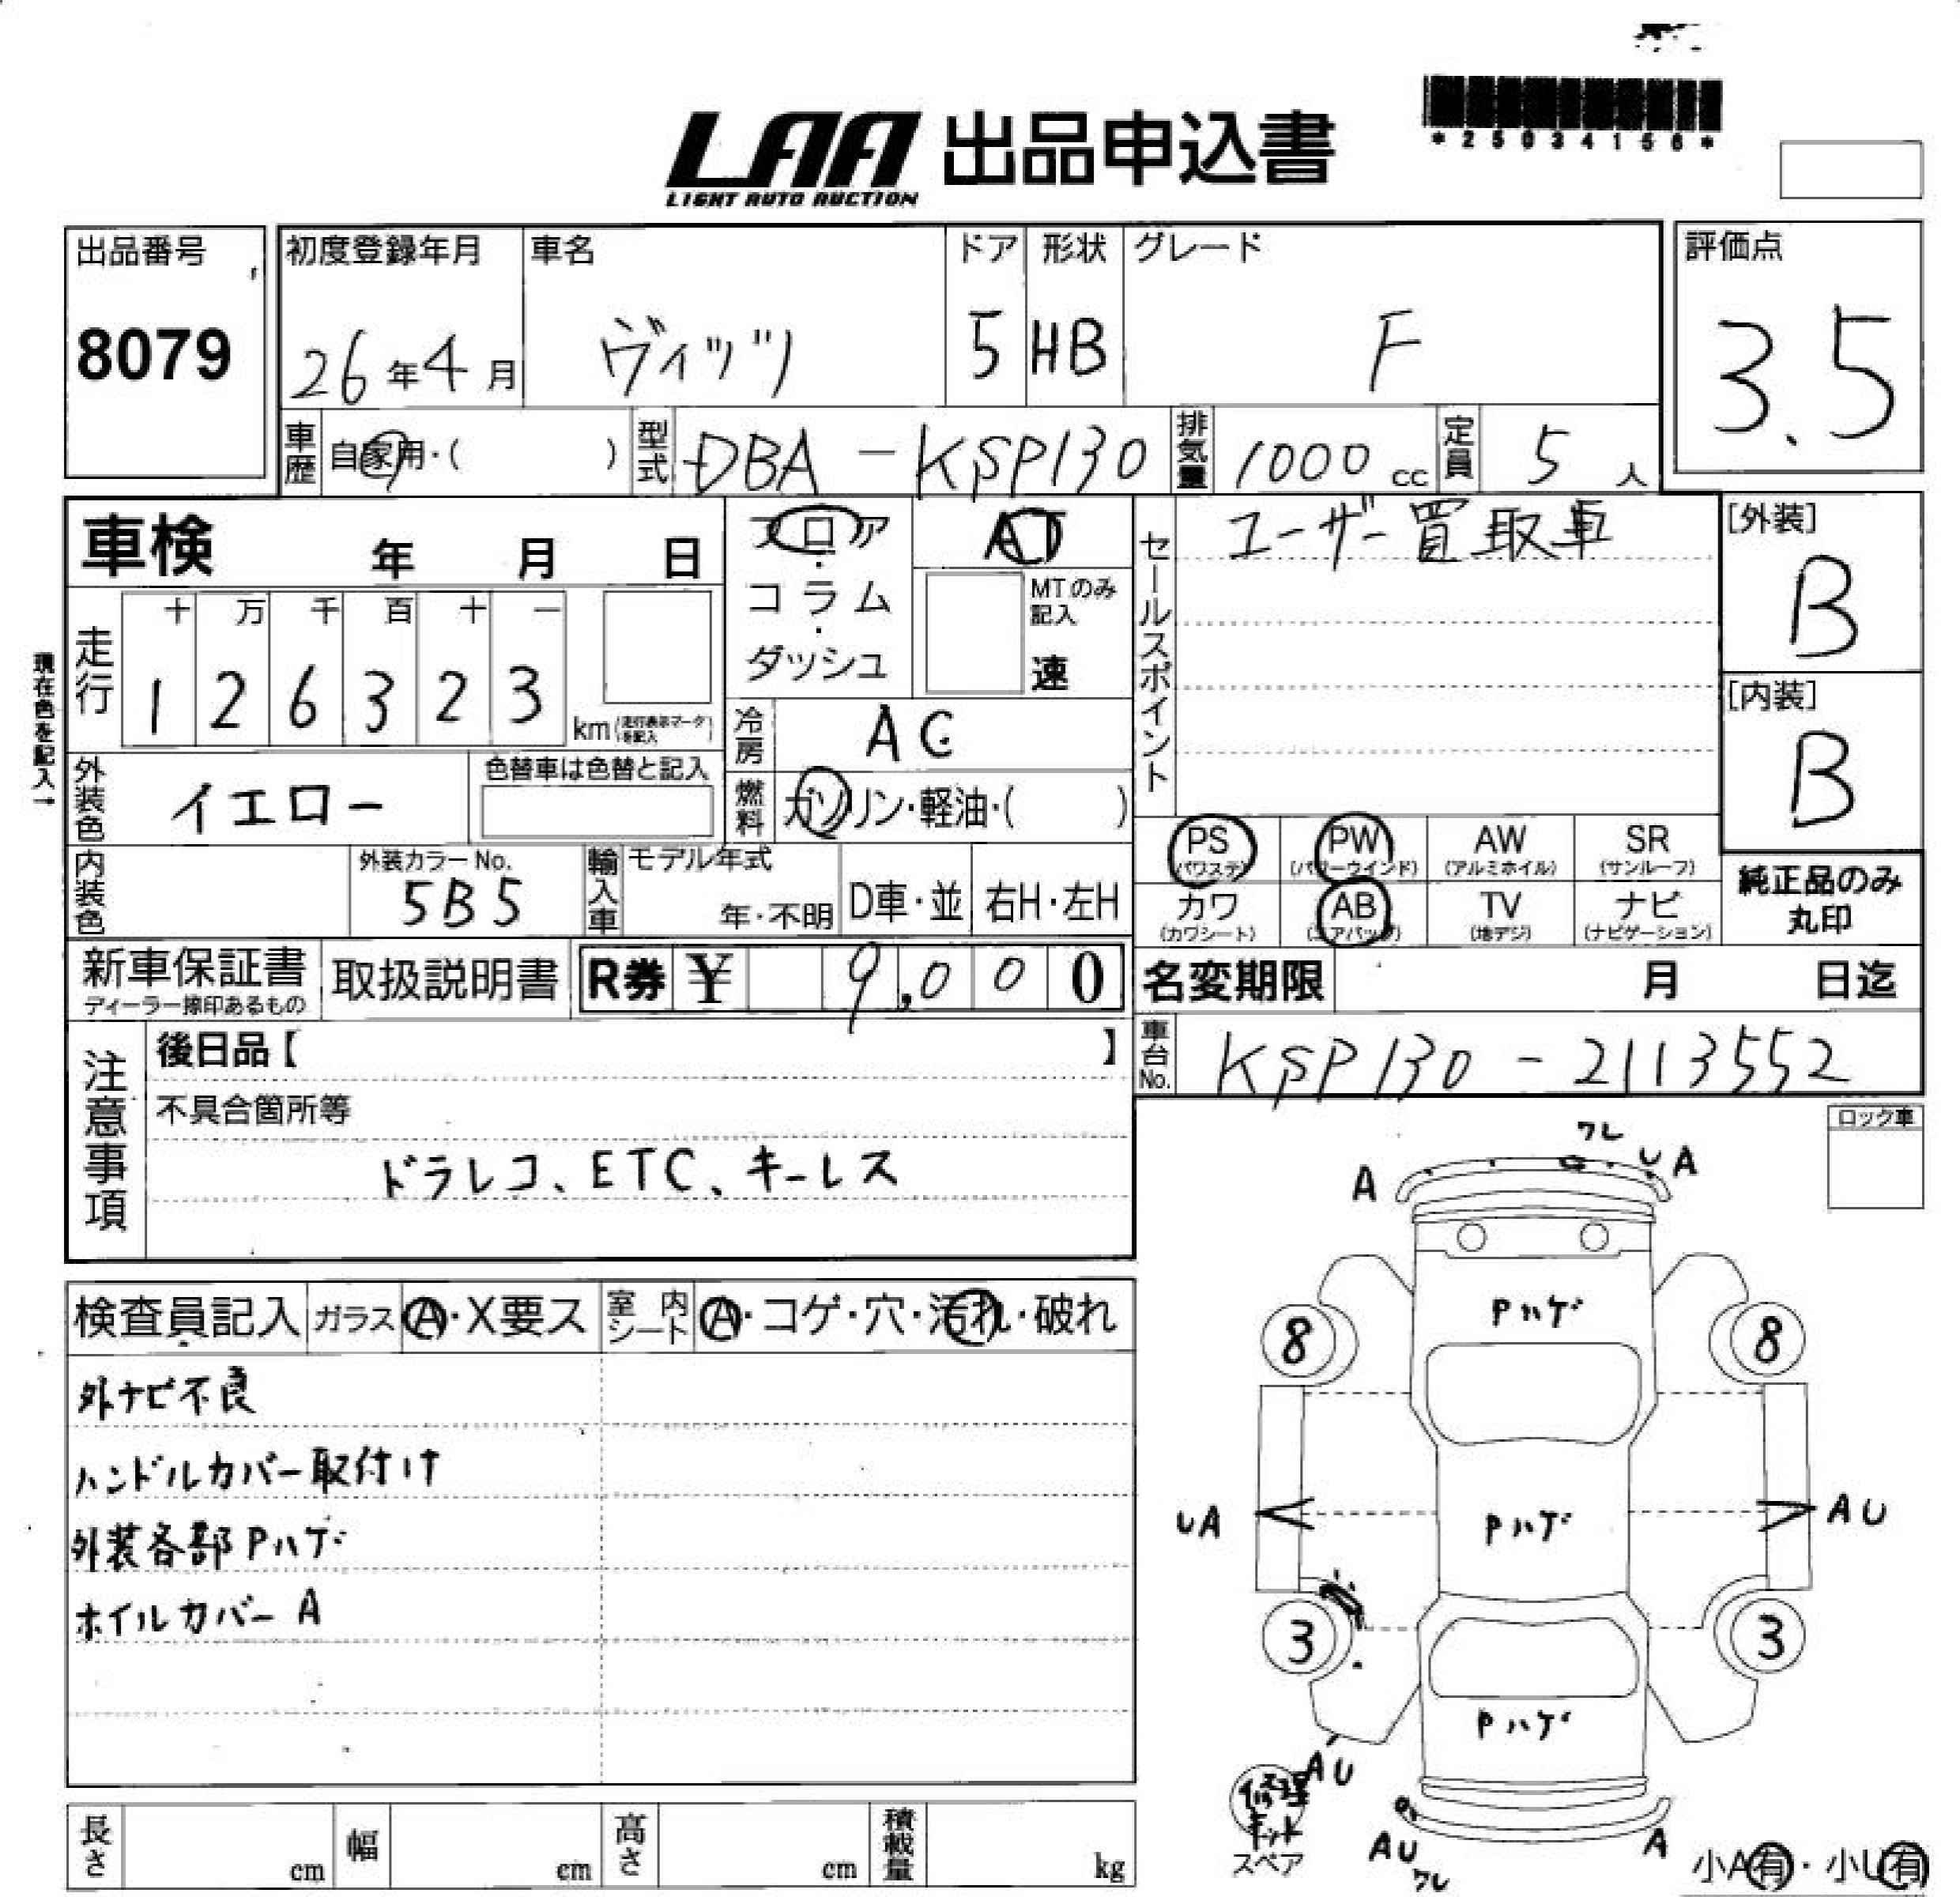 LAA 出品申込書
LIGHT AUTO AUCTION
*25034156*
出品番号 8079
初度登録年月 26年4月
車名 ヴィッツ
ドア 5
形状 HB
グレード F
評価点 3.5
車歴 自家用・( )
型式 DBA-KSP130
排気量 1000cc
定員 5人
車検 年 月 日
フロア・コラム・ダッシュ
AT
MTのみ記入
速
セールスポイント
ユーザー買取車
[外装] B
[内装] B
現在色を記入→
走行
十 万 千 百 十 一
1 2 6 3 2 3 km(走行表示マークを記入)
冷房 AC
外装色 イエロー
色替車は色替と記入
燃料 ガソリン・軽油・( )
PS (パワステ)
PW (パワーウインド)
AW (アルミホイル)
SR (サンルーフ)
カワ (カワシート)
AB (エアバッグ)
TV (地デジ)
ナビ (ナビゲーション)
純正品のみ丸印
内装色
外装カラーNo. 5B5
輸入車
モデル年式 年・不明
D車・並
右H・左H
新車保証書
ディーラー捺印あるもの
取扱説明書
R券 ¥ 9,000
名変期限 月 日迄
車台No. KSP130-2113552
注意事項
後日品【 】
不具合箇所等
ドラレコ、ETC、キーレス
ロック車
検査員記入
ガラス A・X要ス
室内シート A・コゲ・穴・汚れ・破れ
外ナビ不良
ハンドルカバー取付け
外装各部Pハゲ
ホイルカバーA
ワレ
A
UA
Pハゲ
8
8
UA
Pハゲ
AU
3
3
Pハゲ
AU
修理キット
スペア
AU
ワレ
A
小A有・小U有
長さ cm
幅 cm
高さ cm
積載量 kg